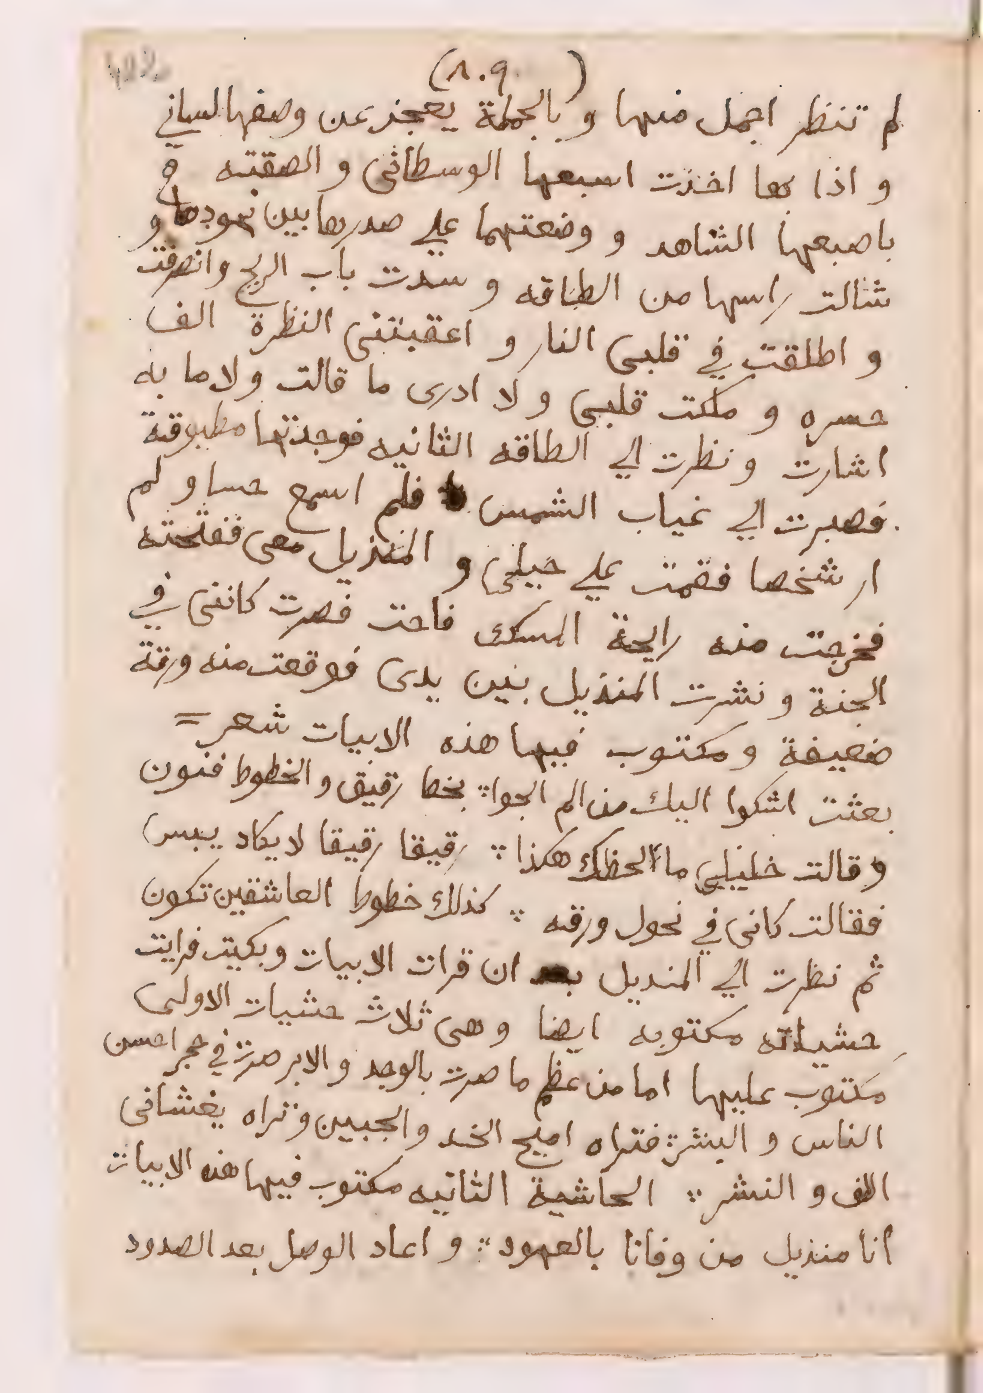 (٨٠٩)
لم تنظر اجمل منها و بالجملة يعجز عن وصفها لساني
و اذا بها اخذت اسبعها الوسطاني و الصقته
باصبعها الشاهد و وضعتهما علي صدرها بين نهودها و
شالت راسها من الطاقه و سدت باب الريح وانصرفت
و اطلقت في قلبي النار و اعقبتني النظرة الف
حسره و ملكت قلبي و لا ادرى ما قالت ولا ما به
اشارت و نظرت الي الطاقه الثانيه فوجدتها مطبوقة
فصبرت الي غياب الشمس فلم اسمع حسا و لم
ار شخصا فقمت علي حيلي و المنديل معى ففتحته
فخرجت منه رايحة المسك فاحت فصرت كانني في
الجنة و نشرت المنديل بين يدى فوقعت منه ورقة
ضعيفة و مكتوب فيها هذه الابيات شعر =
بعثت اشكوا اليك من الم الجوا ؞ بخط رقيق و الخطوط فنون
و قالت خليلي ما لحظك هكذا ؞ رقيقا رقيقا لا يكاد يبين
فقالت كاني في نحول ورقه ؞ كذلك خطوط العاشقين تكون
ثم نظرت الي المنديل بعد ان قرات الابيات و بكيت فرايت
حشياته مكتوبه ايضا و هي ثلاث حشيات الاولى
مكتوب عليها اما من عظم ما صرت بالوجد و الابر صرت في حجر احسن
الناس و البشر فتراه امليح الخد و الجبين و تراه يغشاني
اللف و النشر ؞ الحاشية الثانيه مكتوب فيها هذه الابيات
انا منديل من وفانا بالعهود ؞ و اعاد الوصل بعد الصدود